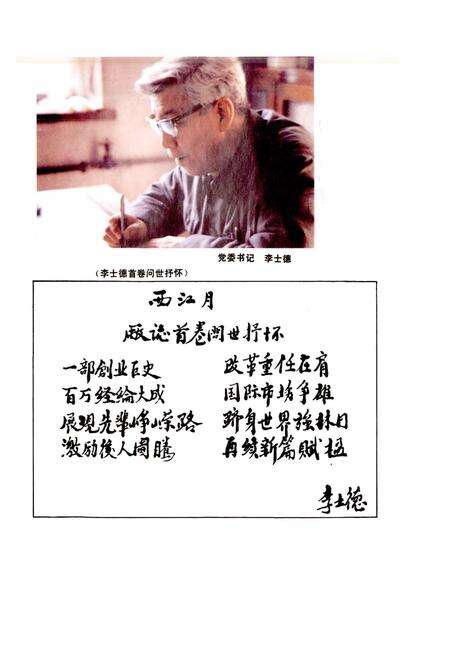 党委书记 李士德
(李士德首卷问世抒怀)
西江月
誌首卷问世抒怀
一部創业巨史
百万经纶大成
展现先辈峥嵘路
激励後人图腾
改革重任在肩
国际市场争雄
跻身世界強林日
再续新篇赋
李士德